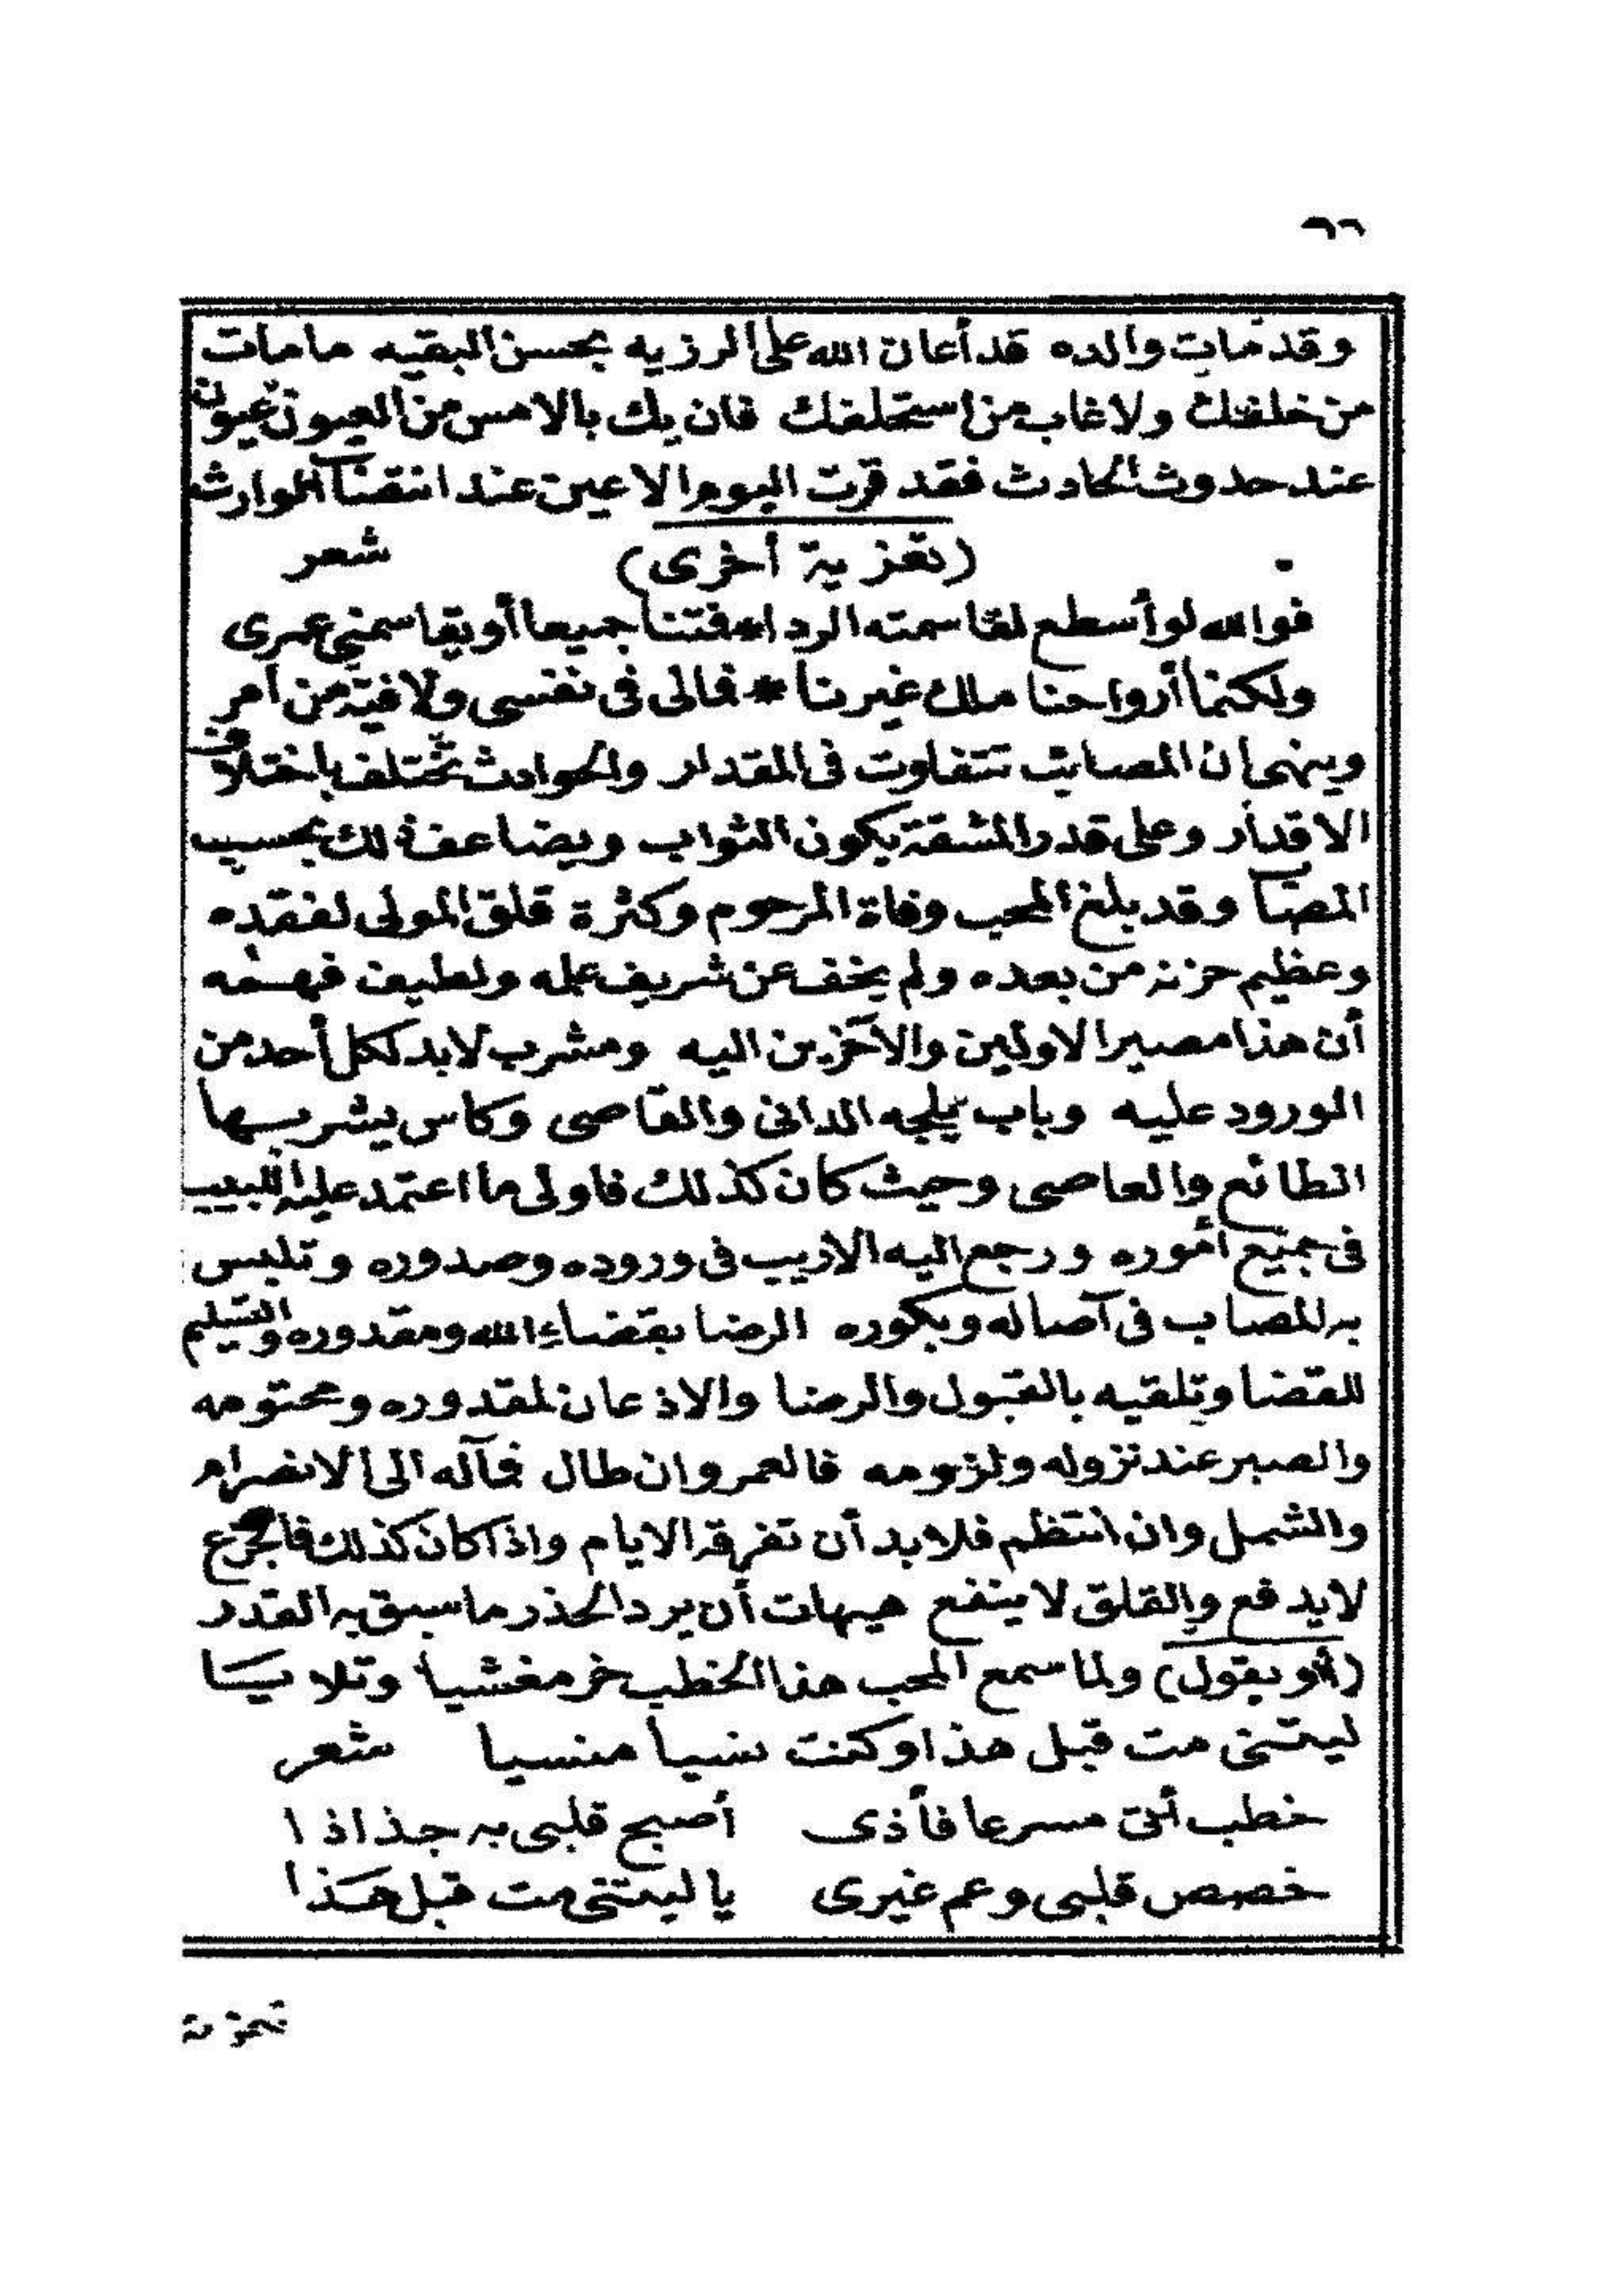 ٦٦
وقد مات والده قد أعان الله على الرزيه بحسن البقيه مامات
من خلفك ولا غاب من استخلفك فان يك بالامس من العيون عيون
عند حدوث الحادث فقد قرت اليوم الاعين عند الوارث
(تعزية أخرى) شعر
فوالله لو أسطع لقاسمته الردا * فمتنا جميعا أو يقاسمني عمرى
ولكنما أرواحنا ملك غيرنا * فمالى فى نفسى ولا فيه من أمر
وينهى ان المصائب تتفاوت فى المقدار والحوادث تختلف باختلاف
الاقدار وعلى قدر المشقة يكون الثواب ويضاعف ذلك بحسب
المصاب وقد بلغ المحب وفاة المرحوم وكثرة قلق المولى لفقده
وعظيم حزنه من بعده ولم يخف عن شريف علمه ولطيف فهمه
أن هذا مصير الاولين والآخرين اليه ومشرب لابد لكل أحد من
الورود عليه وباب يلجه الدانى والقاصى وكاس يشربها
الطائع والعاصى وحيث كان كذلك فاولى ما اعتمد عليه اللبيب
فى جميع أموره ورجع اليه الاريب فى وروده وصدوره وتلبس
به المصاب فى آصاله وبكوره الرضا بقضاء الله ومقدوره والتسليم
للقضا وتلقيه بالقبول والرضا والاذعان لمقدوره ومحتومه
والصبر عند نزوله ولزومه فالعمر وان طال فمآله الى الانصرام
والشمل وان انتظم فلا بد أن تفرقه الايام واذا كان كذلك فالجزع
لا يدفع والقلق لا ينفع هيهات أن يرد الحذر ما سبق به القدر
(أو يقول) ولما سمع المحب هذا الخطب خر مغشيا وتلا يا
ليتنى مت قبل هذا وكنت نسيا منسيا شعر
خطب أتى مسرعا فأذى أصبح قلبى به جذاذا
خصص قلبى وعم غيرى يا ليتنى مت قبل هذا